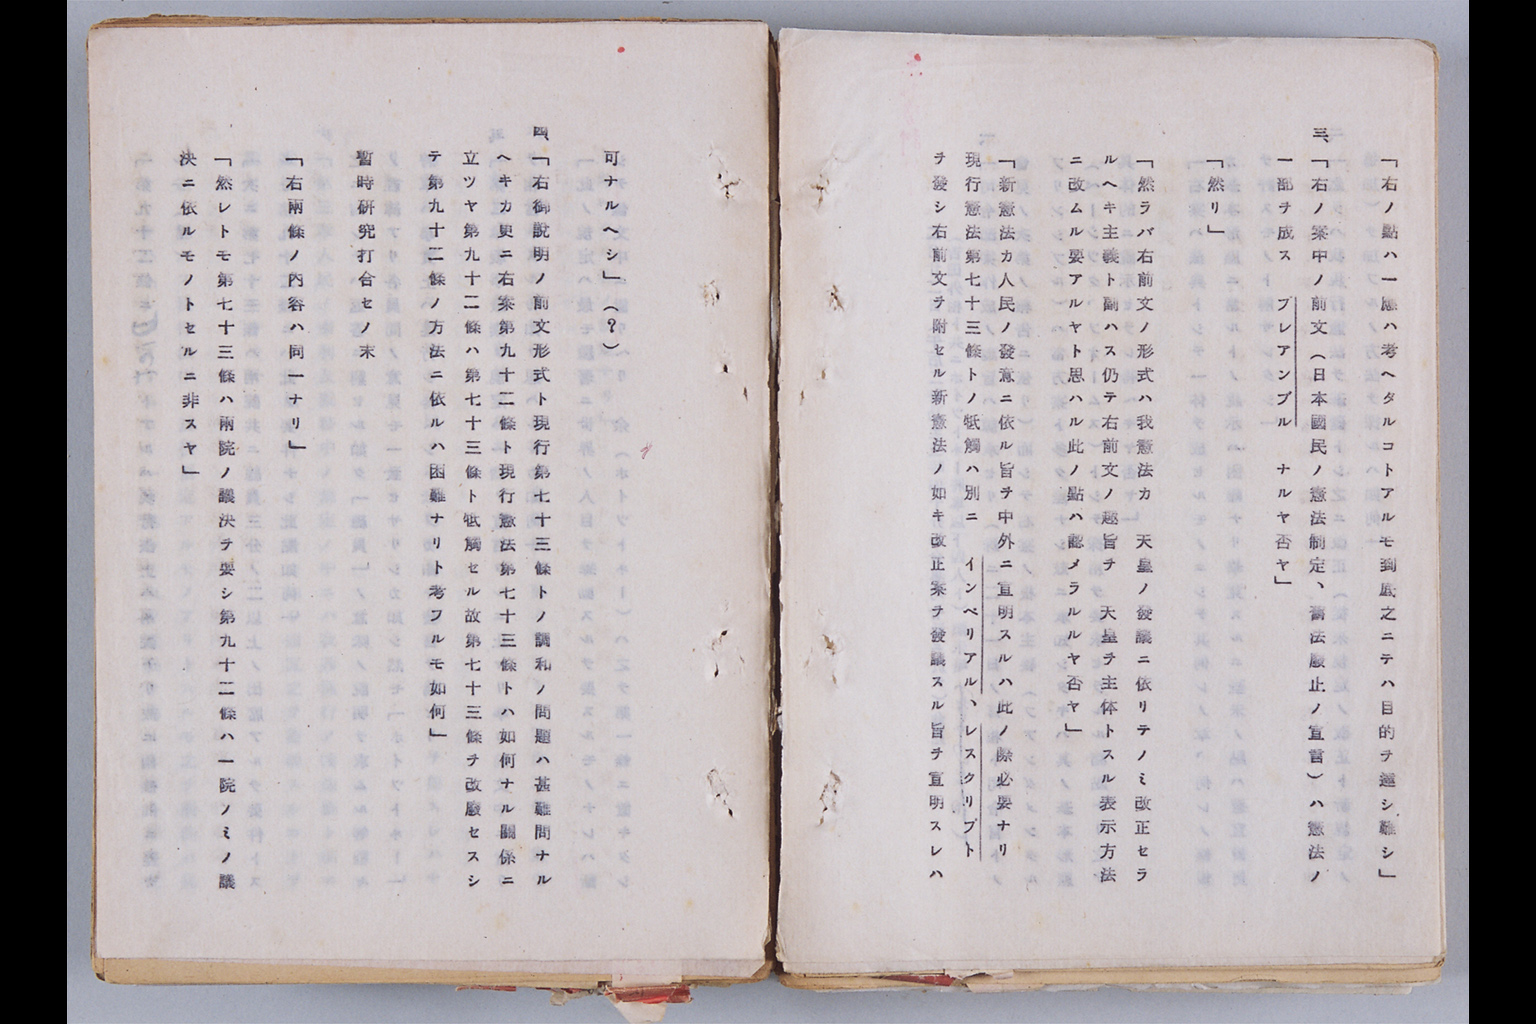 「右ノ點ハ一應ハ考ヘタルコトアルモ到底之ニテハ目的ヲ達シ難シ」
三、「右ノ案中ノ前文（日本國民ノ憲法制定、舊法廢止ノ宣言）ハ憲法ノ
一部ヲ成ス　プレアンブル　ナルヤ否ヤ」
「然リ」
「然ラバ右前文ノ形式ハ我憲法カ　天皇ノ發議ニ依リテノミ改正セラ
ルヘキ主義ト副ハス仍テ右前文ノ趣旨ヲ　天皇ヲ主体トスル表示方法
ニ改ムル要アルヤト思ハル此ノ點ハ認メラルルヤ否ヤ」
「新憲法カ人民ノ發意ニ依ル旨ヲ中外ニ宣明スルハ此ノ際必要ナリ
現行憲法第七十三條トノ牴觸ハ別ニ　インペリアル、レスクリプト
ヲ發シ右前文ヲ附セル新憲法ノ如キ改正案ヲ發議スル旨ヲ宣明スレハ
可ナルヘシ」（？）
四、「右御說明ノ前文形式ト現行第七十三條トノ調和ノ問題ハ甚難問ナル
ヘキカ更ニ右案第九十二條ト現行憲法第七十三條トハ如何ナル關係ニ
立ツヤ第九十二條ハ第七十三條ト牴觸セル故第七十三條ヲ改廢セスシ
テ第九十二條ノ方法ニ依ルハ困難ナリト考フルモ如何」
暫時硏究打合セノ末
「右兩條ノ內容ハ同一ナリ」
「然レトモ第七十三條ハ兩院ノ議決ヲ要シ第九十二條ハ一院ノミノ議
決ニ依ルモノトセルニ非スヤ」